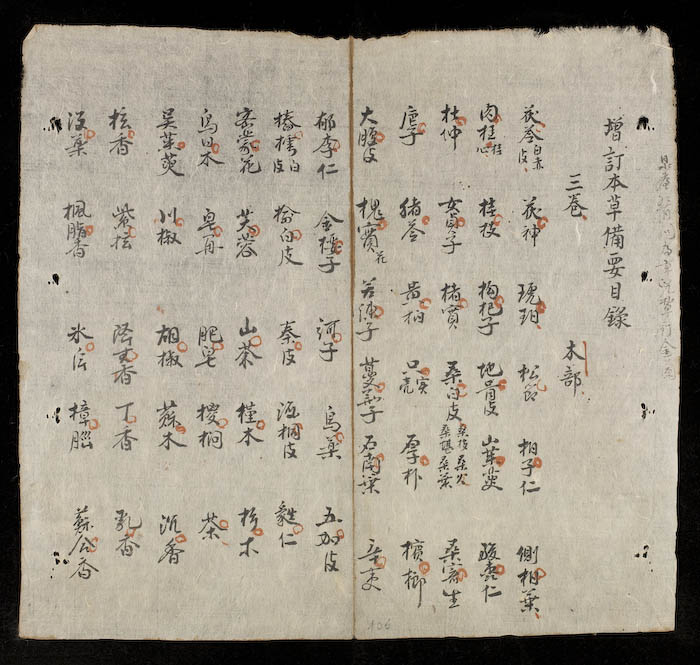 增訂本草備要目錄
三卷 木部
茯苓白赤皮 茯神 琥珀 松節 柏子仁 側柏葉
肉桂桂心 桂枝 枸杞子 地骨皮 山茱萸 酸棗仁
杜仲 女貞子 楮實 桑白皮桑枝桑椹桑葉 桑寄生
梔子 豬苓 黃柏 只實壳 厚朴 檳榔
大腹皮 槐實花 苦練子 蔓荊子 石南葉 辛夷
郁李仁 金櫻子 河子 烏藥 五加皮
椿樗白皮 榆白皮 秦皮 海桐皮 蕤仁
密蒙花 芙蓉 山茶 槿木 杉木
烏臼木 皂角 肥皂 椶櫚 茶
吳茱萸 川椒 胡椒 蘇木 沉香
檀香 紫檀 降真香 丁香 乳香
沒藥 楓脂香 冰片 樟腦 蘇合香